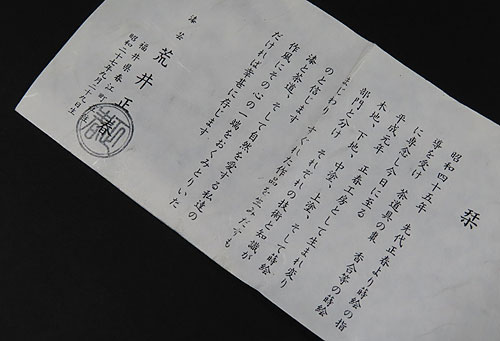 栞
昭和四十五年 先代正春より蒔絵の指
導を受け 茶道具の棗 香合等の蒔絵
に専念し今日に至る
平成元年 正春工房として生まれ変り
木地、下地、中塗、上塗、そして蒔絵
部門と分け それぞれの技術と知識が
まじわり すぐれた作品を生みだすも
のと信じます
漆と茶道、そして自然を愛する私達の
作風にその心の一端をおくみとりいた
だければ幸甚に存じます
漆芸 荒井正春
福井県春江町
昭和二十七年九月二十九日生